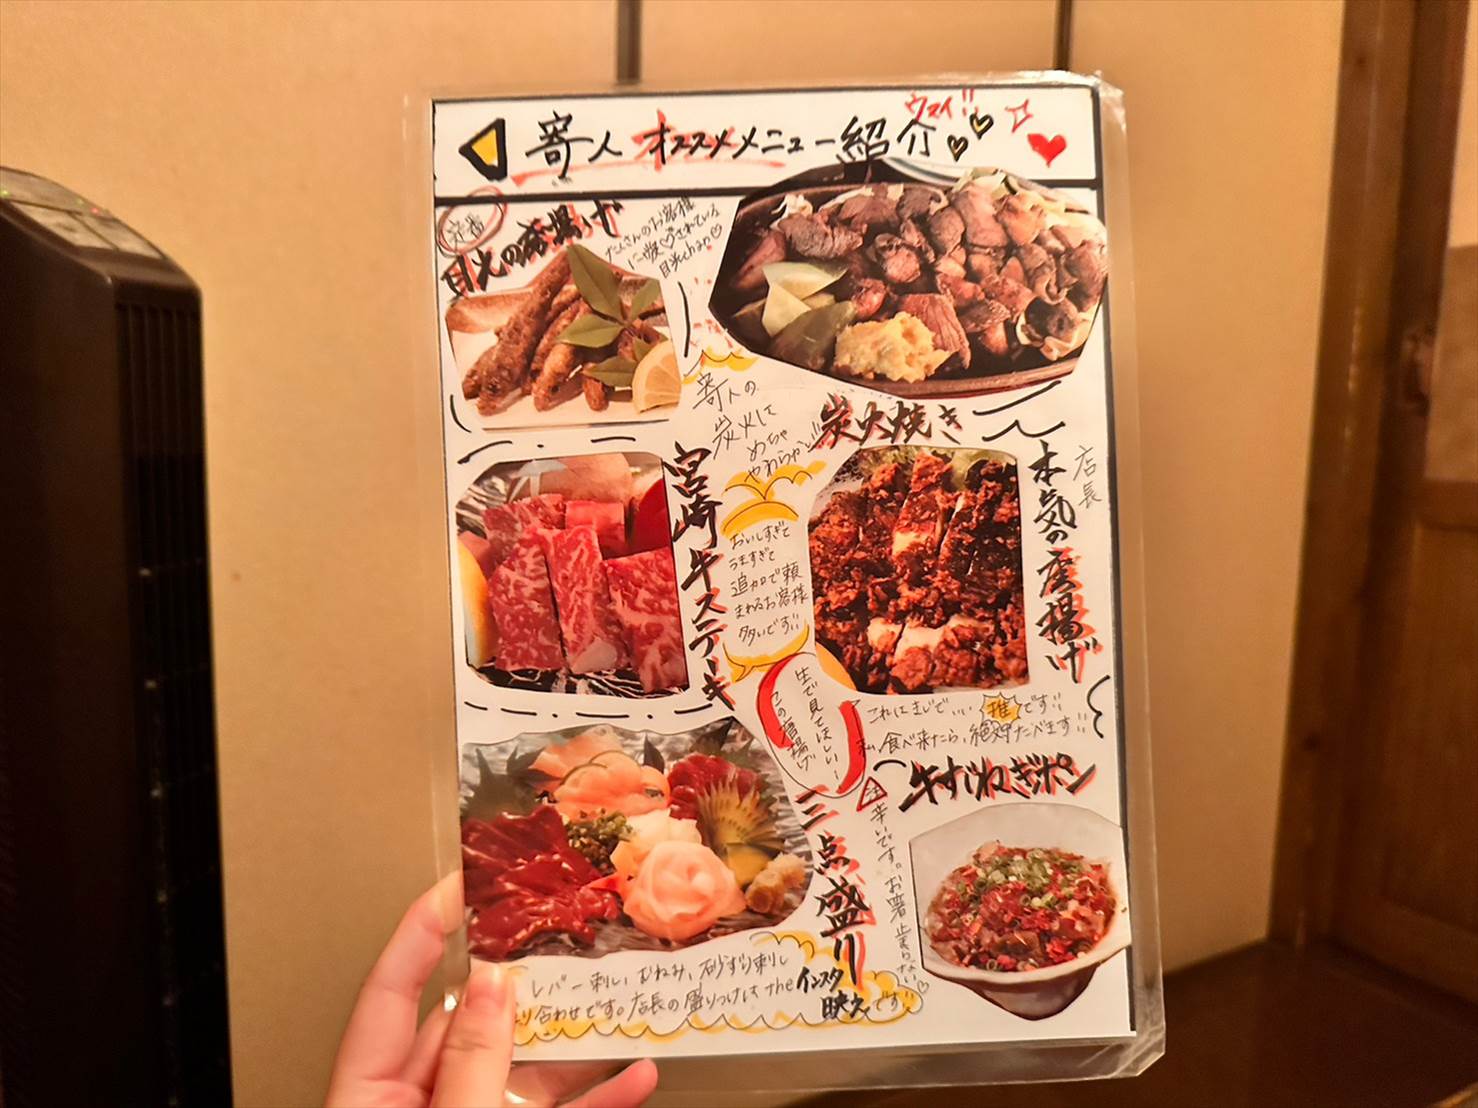 寄人 オススメメニュー紹介
ウマイ!!
定番
目光の唐揚げ
たくさんのお客様
に愛されている
目光chan
寄人の
炭火して
めちゃ
やわらかい!!
炭火焼き
宮崎牛ステーキ
おいしすぎて
うますぎて
追加で頼
まれるお客様
多いです!!
店長
本気の唐揚げ
生で見てほしい!
この唐揚げ
これはまじでいい 推 です!!
私、食べ来たら、絶対たべます!!
三点盛り
レバー刺し、むねみ、砂ずり刺し
り合わせです。店長の盛りつけは The インスタ
映え です!!
牛すじねぎポン
注
辛いです。お箸 止まらない♡